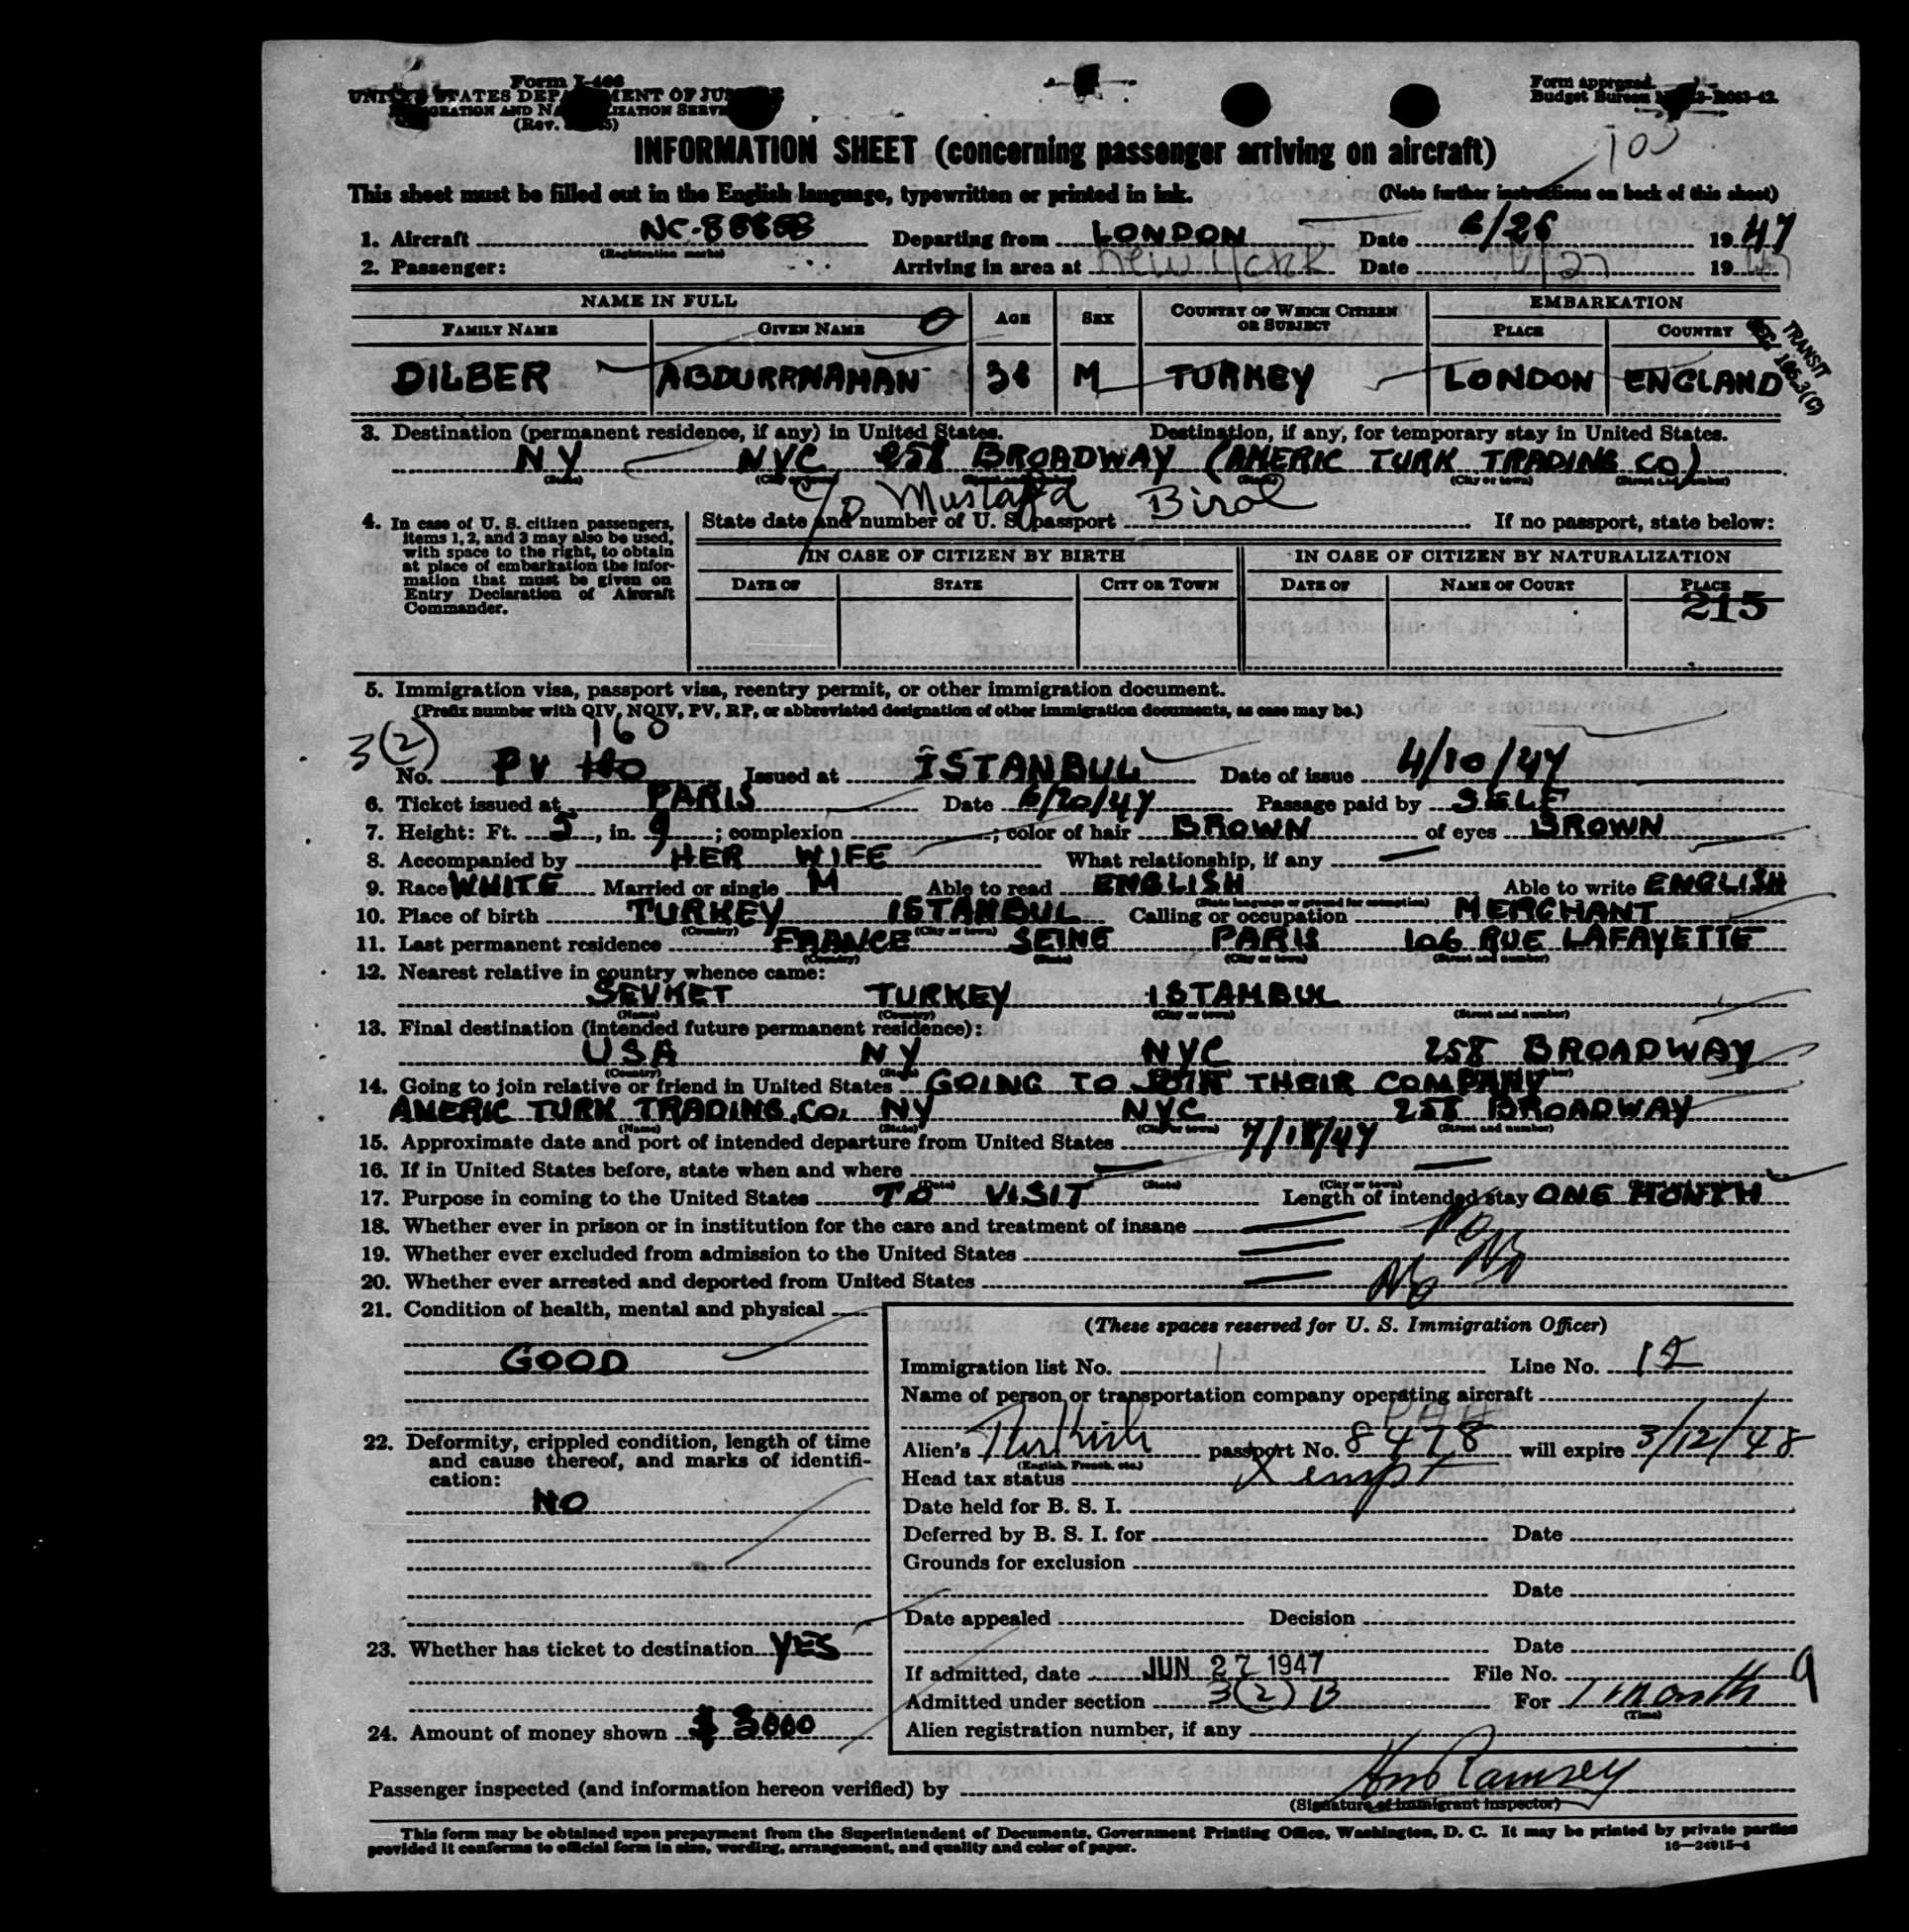 Form I-466
UNITED STATES DEPARTMENT OF JUSTICE
IMMIGRATION AND NATURALIZATION SERVICE
(Rev.
Form approved.
Budget Bureau
INFORMATION SHEET (concerning passenger arriving on aircraft)
This sheet must be filled out in the English language, typewritten or printed in ink. (Note further instructions on back of this sheet)
1. Aircraft NC-88858 Departing from LONDON Date 6/26 1947
(Registration marks)
2. Passenger: Arriving in area at New York Date 6/27 1947
NAME IN FULL EMBARKATION
FAMILY NAME GIVEN NAME AGE SEX COUNTRY OF WHICH CITIZEN OR SUBJECT PLACE COUNTRY
TRANSIT
DILBER ABDURRNAMAN M TURKEY LONDON ENGLAND
3. Destination (permanent residence, if any) in United States. Destination, if any, for temporary stay in United States.
NY NYC, 258 BROADWAY (AMERIC TURK TRADING CO)
(State) (City or town) (Street and number) (State) (City or town) (Street and number)
c/o Mustafa Birol
4. In case of U. S. citizen passengers, items 1, 2, and 3 may also be used, with space to the right, to obtain at place of embarkation the information that must be given on Entry Declaration of Aircraft Commander.
State date and number of U. S. passport If no passport, state below:
IN CASE OF CITIZEN BY BIRTH IN CASE OF CITIZEN BY NATURALIZATION
DATE OF STATE CITY OR TOWN DATE OF NAME OF COURT PLACE
215
5. Immigration visa, passport visa, reentry permit, or other immigration document.
(Prefix number with QIV, NQIV, PV, RP, or abbreviated designation of other immigration documents, as case may be.)
3(2) 160
No. PV Issued at İSTANBUL Date of issue 4/10/47
6. Ticket issued at PARIS Date 6/20/47 Passage paid by SELF
7. Height: Ft. 5, in. 9; complexion ; color of hair BROWN of eyes BROWN
8. Accompanied by HER WIFE What relationship, if any —
9. Race WHITE Married or single M Able to read ENGLISH Able to write ENGLISH
(State language or ground for exemption)
10. Place of birth TURKEY ISTANBUL Calling or occupation MERCHANT
(Country) (City or town)
11. Last permanent residence FRANCE SEINE PARIS 106 RUE LAFAYETTE
(Country) (State) (City or town) (Street and number)
12. Nearest relative in country whence came:
SEVKET TURKEY ISTAMBUL
(Name) (Country) (City or town) (Street and number)
13. Final destination (intended future permanent residence):
USA NY NYC 258 BROADWAY
(Country) (State)
14. Going to join relative or friend in United States GOING TO JOIN THEIR COMPANY
AMERIC TURK TRADING. Co, NY NYC 258 BROADWAY
(Name) (State) (City or town) (Street and number)
15. Approximate date and port of intended departure from United States 7/18/47
16. If in United States before, state when and where — —
(Date) (State) (City or town)
17. Purpose in coming to the United States TO VISIT Length of intended stay ONE MONTH
18. Whether ever in prison or in institution for the care and treatment of insane — No
19. Whether ever excluded from admission to the United States — No
20. Whether ever arrested and deported from United States — No
21. Condition of health, mental and physical
GOOD
22. Deformity, crippled condition, length of time and cause thereof, and marks of identification:
NO
23. Whether has ticket to destination YES
24. Amount of money shown $ 3000
(These spaces reserved for U. S. Immigration Officer)
Immigration list No. 1 Line No. 12
Name of person or transportation company operating aircraft
PAA
Alien's Turkish passport No. 8478 will expire 3/12/48
(English, French, etc.)
Head tax status Xempt
Date held for B. S. I.
Deferred by B. S. I. for Date
Grounds for exclusion
Date
Date appealed Decision
Date
If admitted, date JUN 27 1947 File No.
Admitted under section 3(2) B For 1 month 9
(Time)
Alien registration number, if any
Passenger inspected (and information hereon verified) by Ramsey
(Signature of immigrant inspector)
This form may be obtained upon prepayment from the Superintendent of Documents, Government Printing Office, Washington, D. C. It may be printed by private parties
provided it conforms to official form in size, wording, arrangement, and quality and color of paper. 16—24915-4